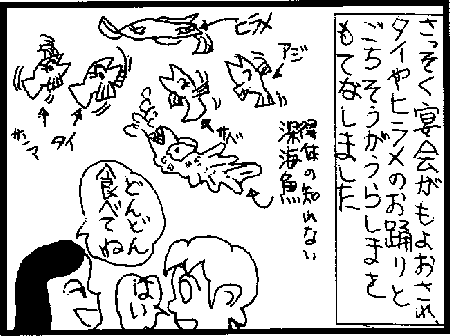 さっそく宴会がもよおされ
タイやヒラメのお踊りと
ごちそうがうらしまを
もてなしました
ヒラメ
アジ
サバ
タイ
サンマ
得体の知れない
深海魚
どんどん
食べてね
はい